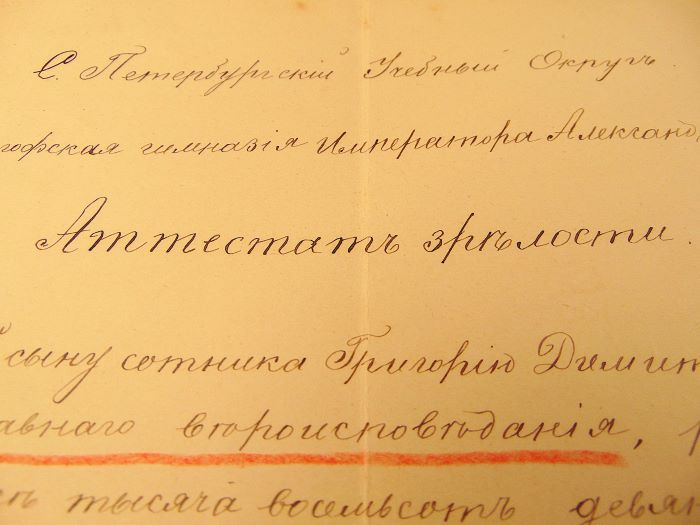 С. Петербургскій Учебный Округъ.
гофская гимназія Императора Александ
Аттестатъ зрѣлости.
сыну сотника Григорію Димит
авнаго вѣроисповѣданія,
тысяча восемьсотъ девян